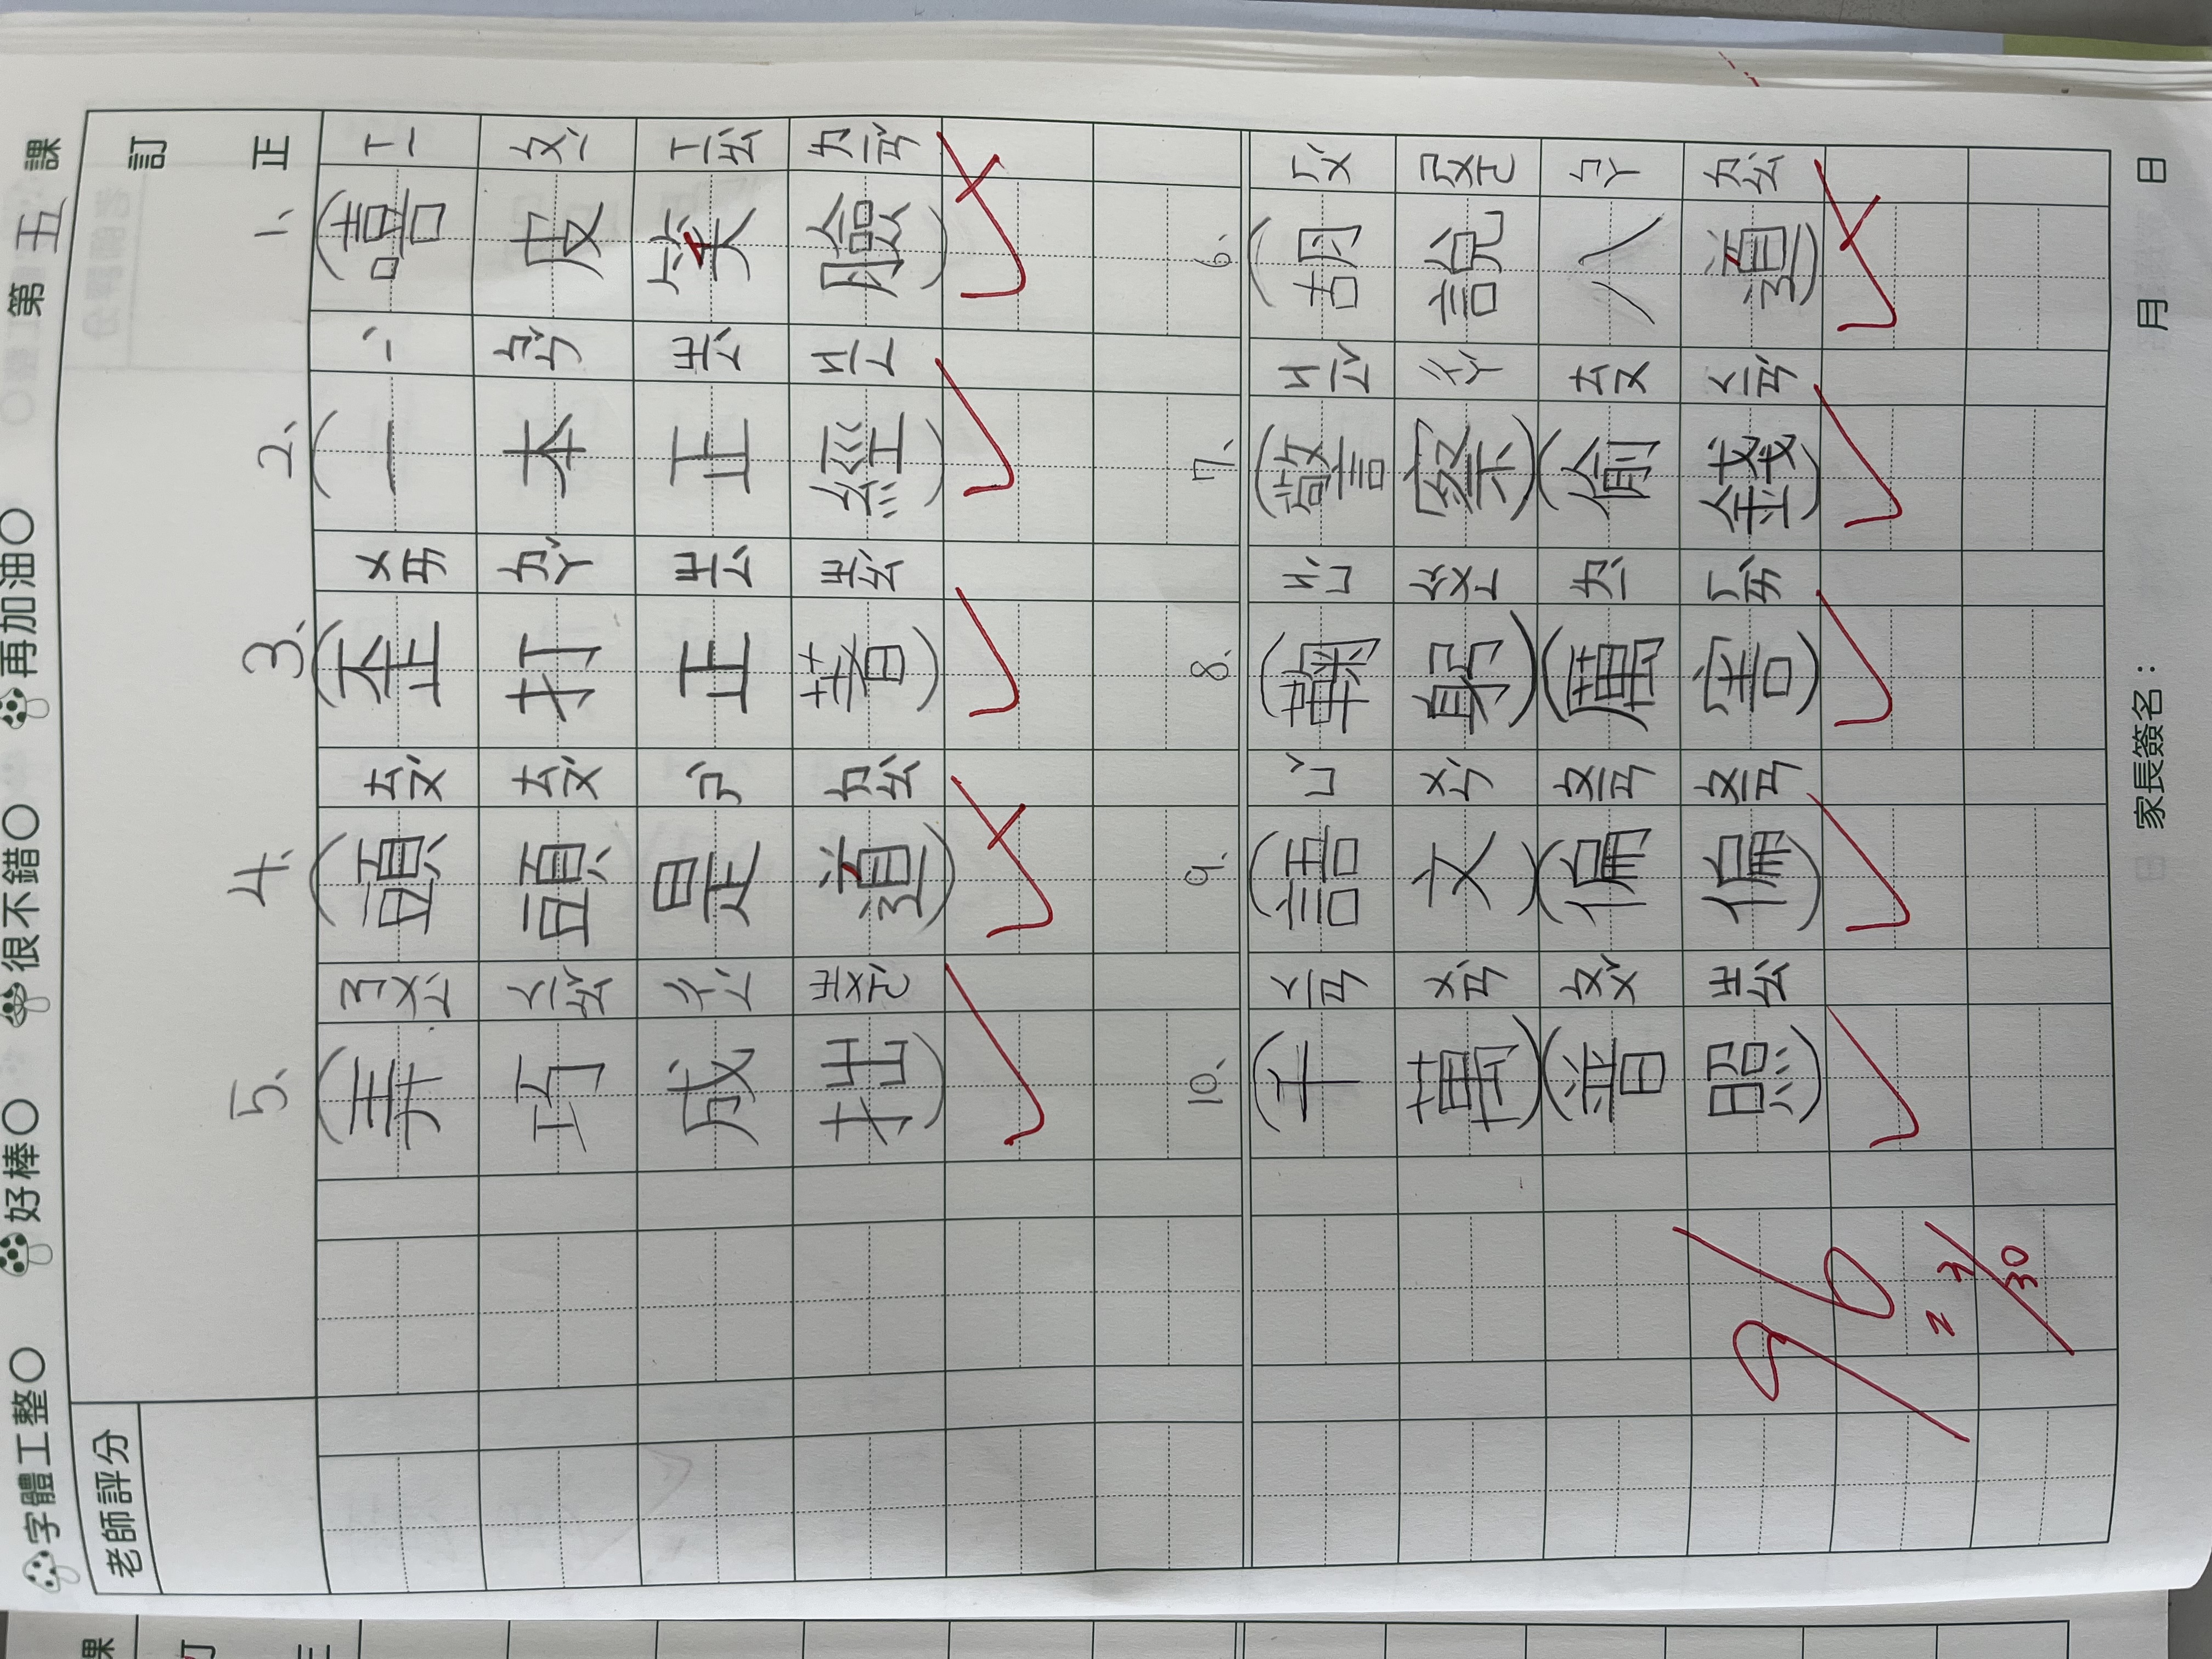 字體工整○ 好棒○ 很不錯○ 再加油○ 第五課
老師評分
訂正
1、(嘻皮笑臉) ㄒㄧ ㄆㄧˊ ㄒㄧㄠˋ ㄌㄧㄢˇ
2、(一本正經) ㄧˋ ㄅㄣˇ ㄓㄥˋ ㄐㄧㄥ
3、(歪打正著) ㄨㄞ ㄉㄚˇ ㄓㄥˋ ㄓㄠˊ
4、(頭頭是道) ㄊㄡˊ ㄊㄡˊ ㄕˋ ㄉㄠˋ
5、(弄巧成拙) ㄋㄨㄥˋ ㄑㄧㄠˇ ㄔㄥˊ ㄓㄨㄛˊ
6、(胡說八道) ㄏㄨˊ ㄕㄨㄛ ㄅㄚ ㄉㄠˋ
7、(警察)(偷錢) ㄐㄧㄥˇ ㄔㄚˊ ㄊㄡ ㄑㄧㄢˊ
8、(鞠躬)(厲害) ㄐㄩˊ ㄍㄨㄥ ㄌㄧˋ ㄏㄞˋ
9、(語文)(偏偏) ㄩˇ ㄨㄣˊ ㄆㄧㄢ ㄆㄧㄢ
10、(千萬)(普照) ㄑㄧㄢ ㄨㄢˋ ㄆㄨˇ ㄓㄠˋ
90
家長簽名： 月 日